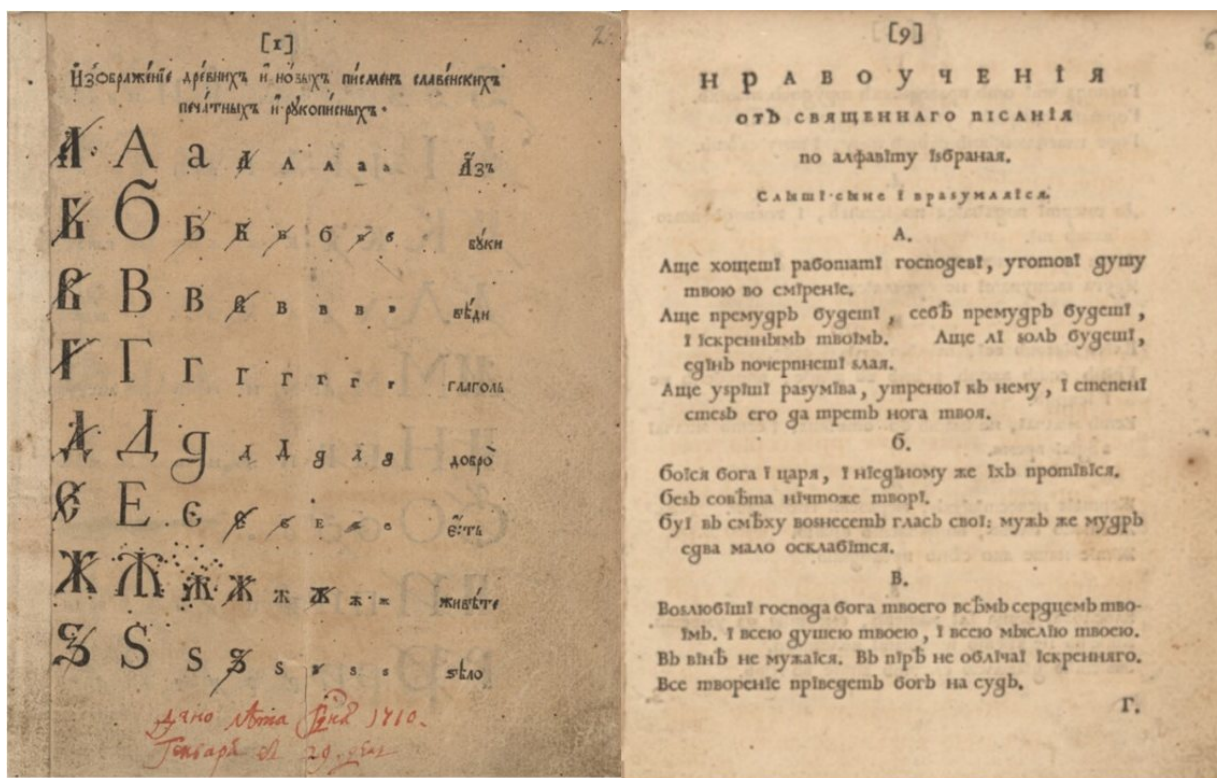 [1]
2
Изѡбраже́нїе дре́внихъ и҆ но́выхъ пи́сменъ славе́нскихъ
печа́тныхъ и҆ рꙋкопи́сныхъ.
А А а а а а а а А҆зъ
Б Б Б Б б б б б бꙋ́ки
В В В В в в в в вѣ́ди
Г Г Г Г Г г г г глаго́ль
Д Д д д Д д д д добро̀
Є Е є е е е е е є҆́сть
Ж Ж Ж Ж ж ж ж ж живѣ́те
Ѕ Ѕ ѕ ѕ ѕ ѕ ѕ ѕ ѕѣло̀
Дано лѣта 1710.
Генваря 29. дня
[9]
6
НРАВОУЧЕНІЯ
отЬ священнаго пісанія
по алфавіту ізбраная.
Слыші сыне і вразумляіся.
А.
Аще хощеші работаті господеві, уготові душу
твою во сміреніе.
Аще премудрЬ будеші, себѣ премудрЬ будеші,
і іскреннымЬ твоімЬ. Аще лі ѕолЬ будеші,
едінЬ почерпнеші ѕлая.
Аще узріші разуміва, утренюі кЬ нему, і степені
стезЬ его да третЬ нога твоя.
Б.
боіся бога і царя, і ніедіному же іхЬ протівіся.
безЬ совѣта нічтоже творі.
буі вЬ смѣху вознесетЬ гласЬ свої: мужЬ же мудрЬ
едва мало осклабітся.
В.
Возлюбіші господа бога твоего всѣмЬ сердцемЬ тво-
імЬ. і всею душею твоею, і всею мыслію твоею.
ВЬ вінѣ не мужаіся. ВЬ пірѣ не облічаі іскренняго.
Все твореніе пріведетЬ богЬ на судЬ.
Г.